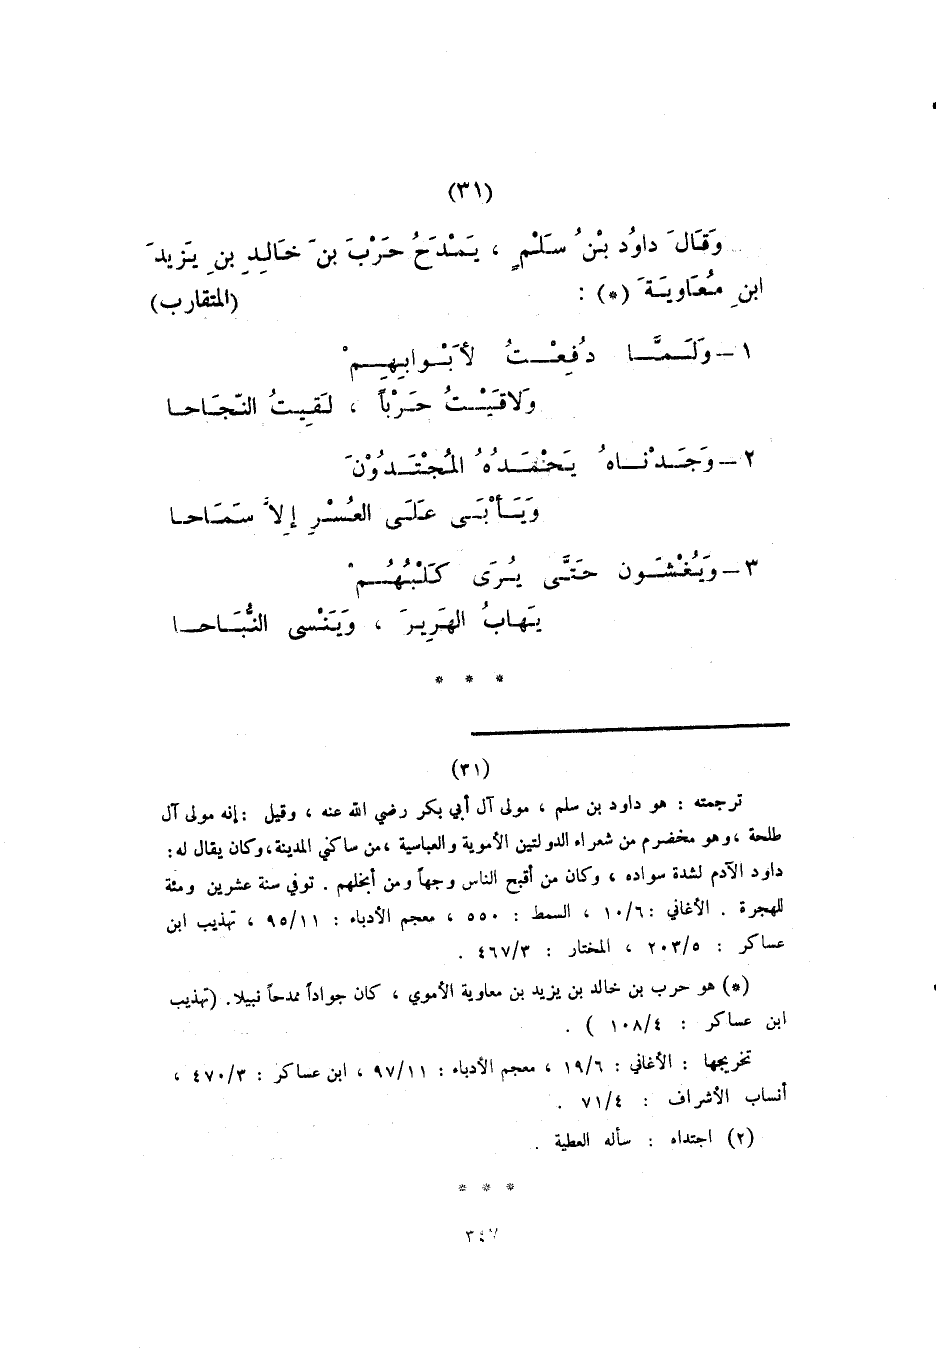 (٣١)
وَقَالَ داوُد بْنُ سَلْمٍ ، يَمْدَحُ حَرْبَ بنَ خَالِدِ بنِ يَزِيدَ
ابنِ مُعَاوِيَةَ (*) : (المتقارب)
١ – وَلَمَّا دُفِعْتُ لأَبْوابِهِمْ
وَلَاقَيْتُ حَرْباً ، لَقِيتُ النَّجَاحا
٢ – وَجَدْناهُ يَحْمَدُهُ المُجْتَدُوْنَ
وَيَأْبَى عَلَى العُسْرِ إِلاَّ سَمَاحا
٣ – وَيُغْشَون حَتَّى يُرَى كَلْبُهُمْ
يَهابُ الهَرِيرَ ، وَيَنْسى النُّبَاحا
* * *
(٣١)
ترجمته : هو داود بن سلم ، مولى آل أبي بكر رضي الله عنه ، وقيل : إنه مولى آل
طلحة ، وهو مخضرم من شعراء الدولتين الأموية والعباسية ، من ساكني المدينة ، وكان يقال له :
داود الآدم لشدة سواده ، وكان من أقبح الناس وجهاً ومن أبخلهم . توفي سنة عشرين ومئة
للهجرة . الأغاني : ١٠/٦ ، السمط : ٥٥٠ ، معجم الأدباء : ٩٥/١١ ، تهذيب ابن
عساكر : ٢٠٣/٥ ، المختار : ٤٦٧/٣ .
(*) هو حرب بن خالد بن يزيد بن معاوية الأموي ، كان جواداً ممدحاً نبيلا . (تهذيب
ابن عساكر : ١٠٨/٤ ) .
تخريجها : الأغاني : ١٩/٦ ، معجم الأدباء : ٩٧/١١ ، ابن عساكر : ٤٧٠/٣ ،
أنساب الأشراف : ٧١/٤ .
(٢) اجتداه : سأله العطية .
* * *
٣٤٧